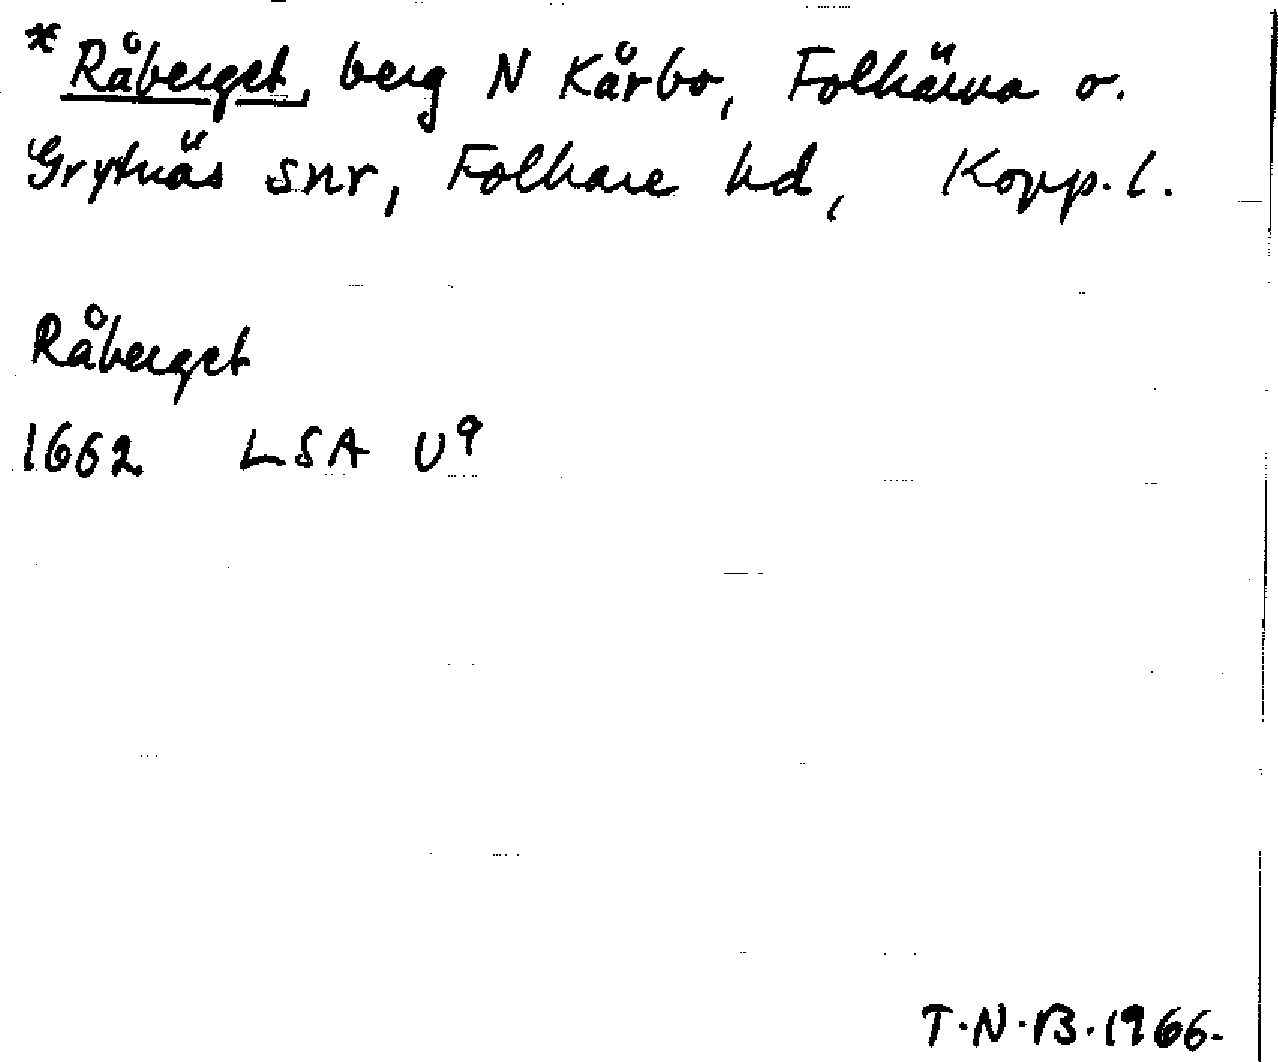 * Råberget, berg N Kårbo, Folkärna o.
Grytnäs snr, Folkare hd, Kopp. l.
Råberget
1662 LSA U⁹
T.N.B. 1966.